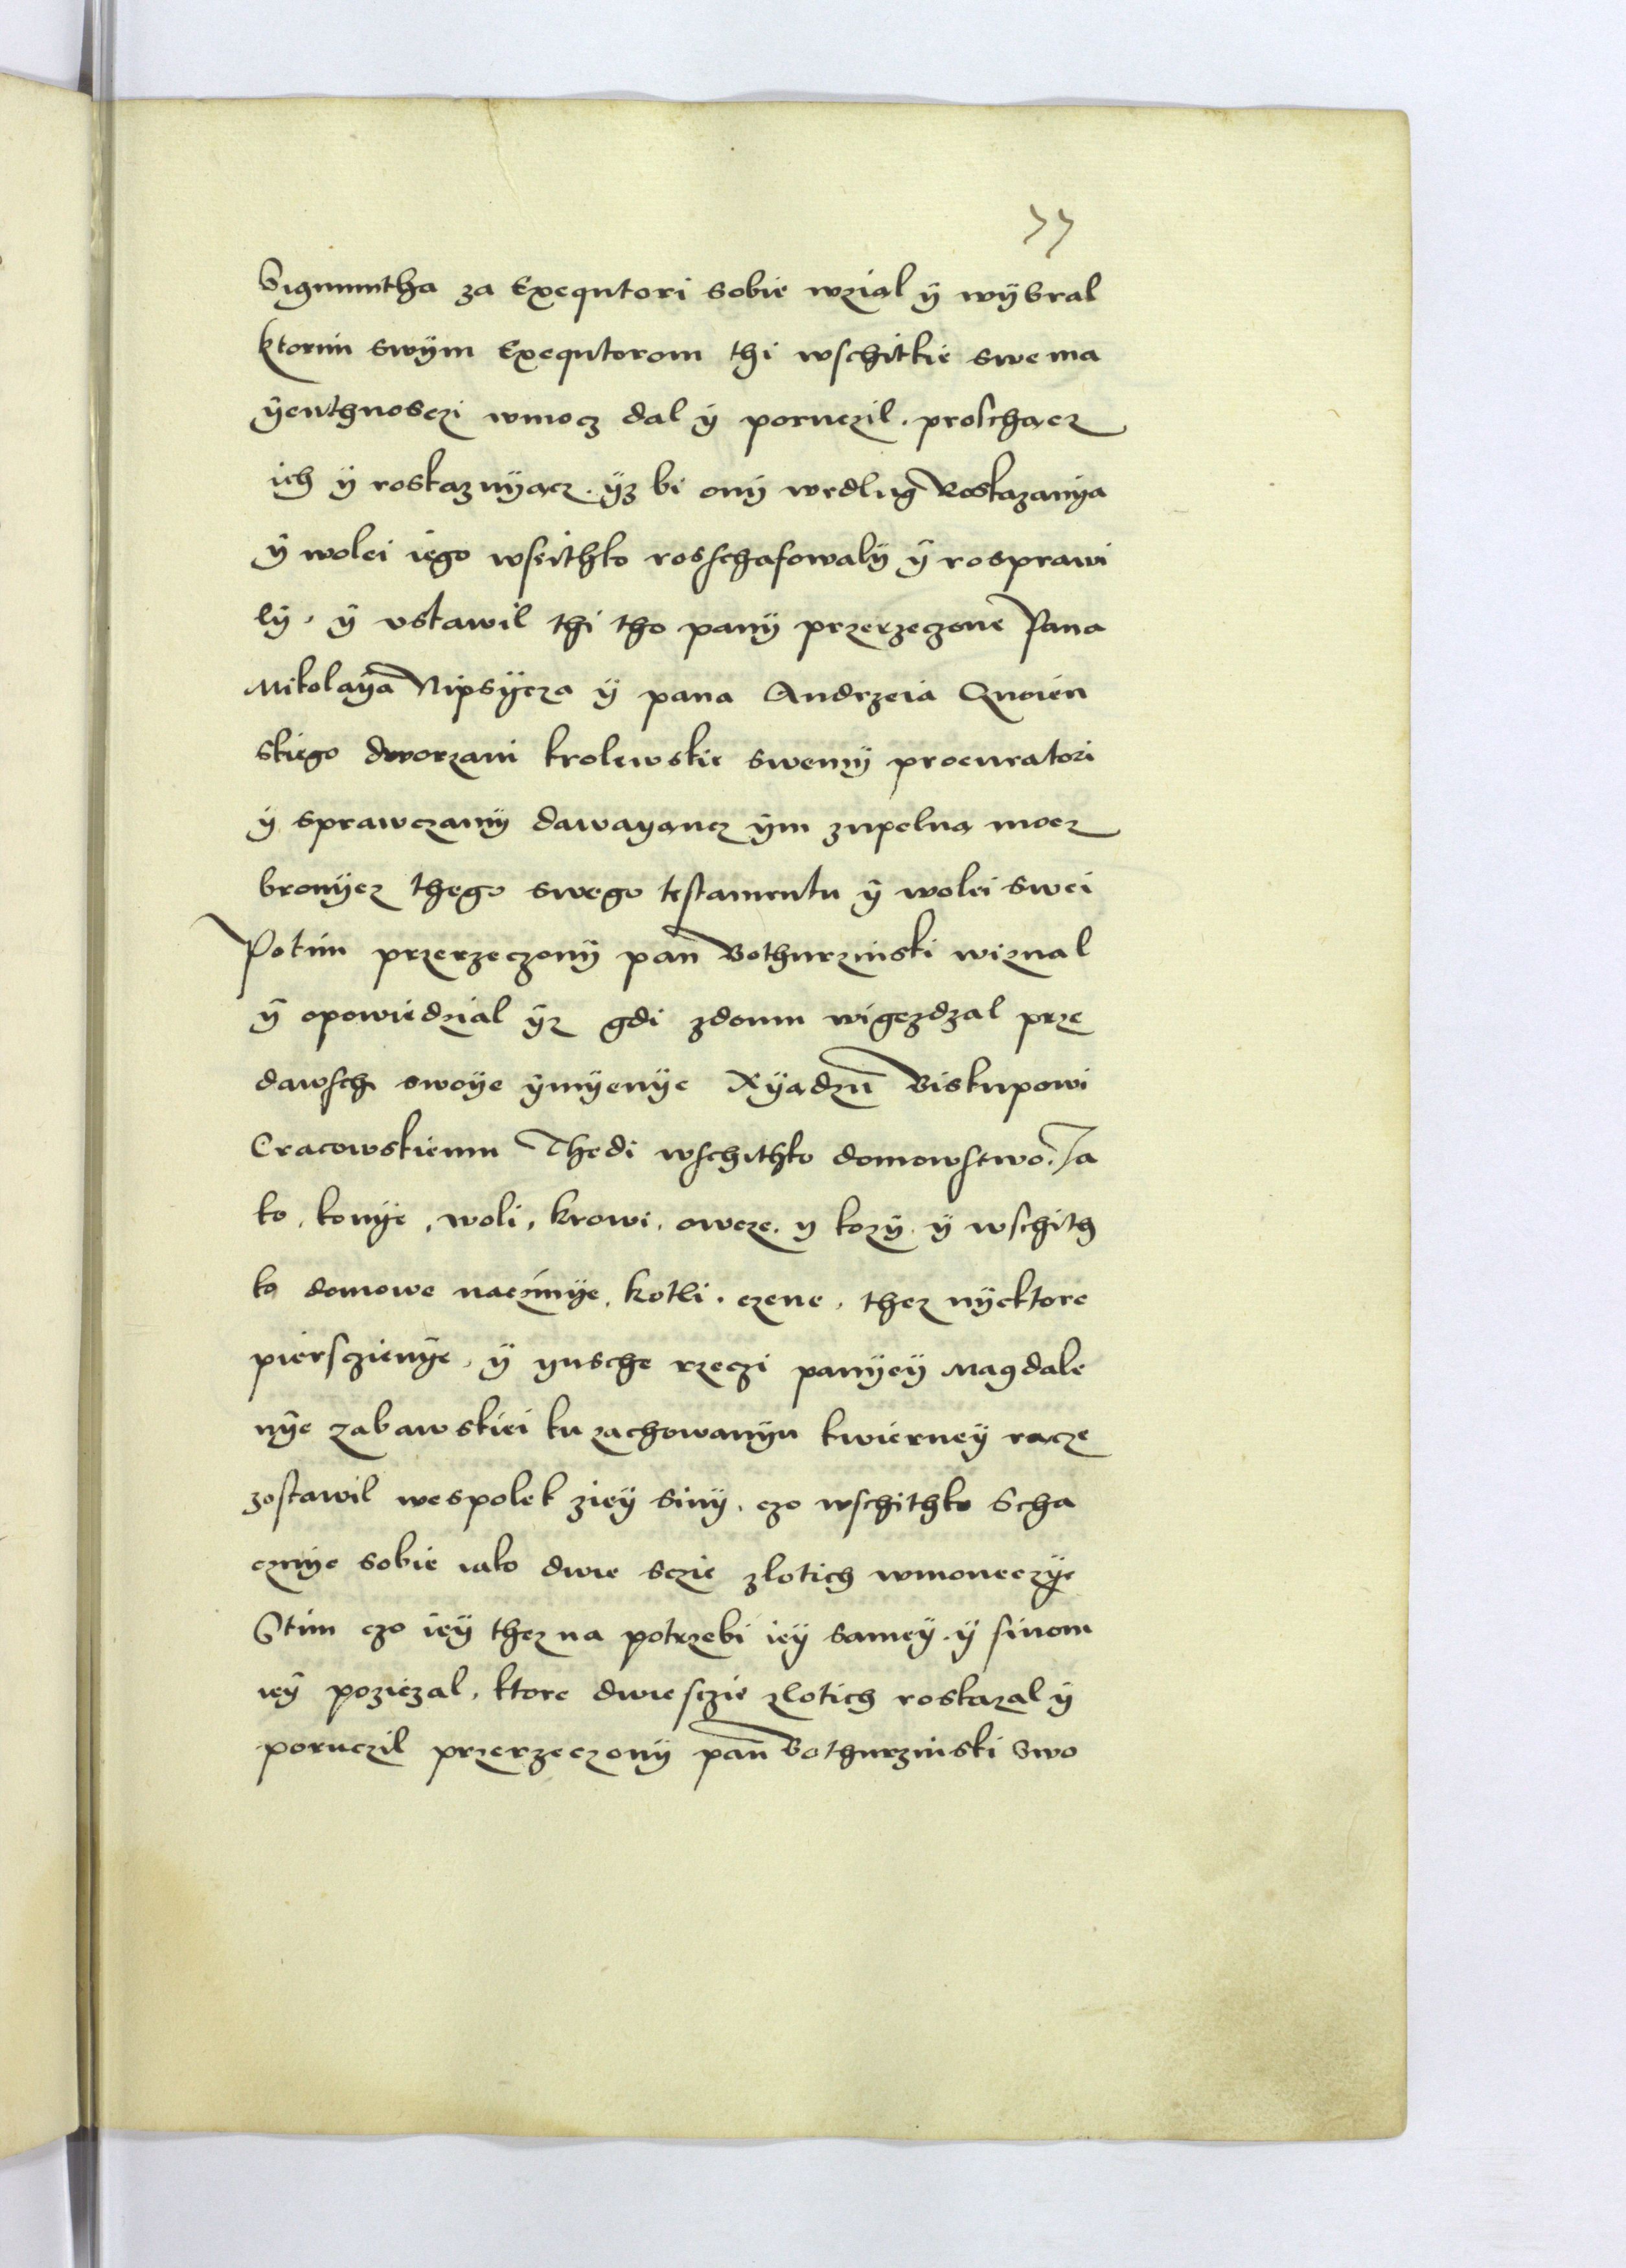 77
Sigmuntha za Exequtori sobie wzial ÿ wÿbral
ktorim swÿm Exequtorom thi wschitkie swe ma
ÿenthnosczi wmocz dal ÿ poruczil . proschącz
ich ÿ roskazuÿącz . ÿz bi onÿ wedlug Roskazanÿa
ÿ wolei iego wscithko rosschafowalÿ ÿ rosprawi
lÿ . ÿ ustawil thi tho panÿ przerzeczone Pana
Mikolaÿa Nipsÿcza ÿ pana Andrzeia
skiego dworzani krolewskie swemÿ procuratori
ÿ sprawczamÿ dawaÿancz ÿm zupelną mocz
bronÿcz thego swego testamentu ÿ wolei swei
Potim przerzeczonÿ pan Bothurzinski wiznal
ÿ opowiedzial ÿz gdi zdomu wigezdzal prze
dawsch swoÿe ÿmÿenÿe Xÿądzu Biskupowi
Cracowskiemu Thedi wschithko domowstwo . Ja
ko , konÿe , woli , krowi , owcze . y kozÿ . ÿ wschith
ko domowe naczinÿe , kotli . czene , thez nÿektore
pierszienÿe , ÿ ynsche rzeczi panÿeÿ Magdale
nÿe zabawskiei ku zachowanÿu kwierneÿ racze
zostawil wespolek zieÿ sinÿ , czo wschithko scha
cznÿe sobie iako dwie sczie zlotich wmoneczÿe
Stim czo ieÿ thez na potrzebi ieÿ sameÿ . ÿ sinom
ieÿ poziczal , ktore dwiesczie zlotich roskazal ÿ
poruczil przerzeczonÿ pan Bothurzinski swo